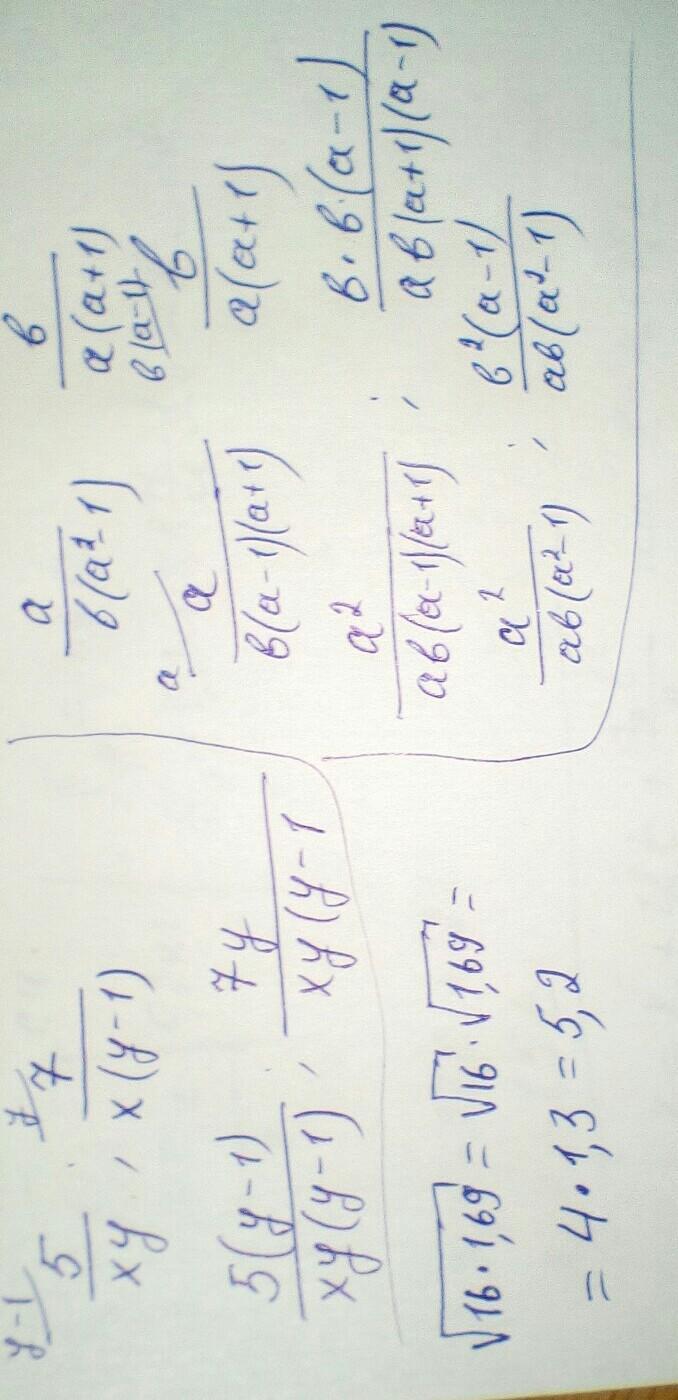 y-1/ 5/(xy) , y/ 7/(x(y-1))
5(y-1)/(xy(y-1)) , 7y/(xy(y-1
√(16·1,69) = √16 · √1,69 =
= 4·1,3 = 5,2
a/(в(a²-1)) в/(a(a+1))
a/ a/(в(a-1)(a+1)) в(a-1)/ в/(a(a+1))
a²/(aв(a-1)(a+1)) ; в·в·(a-1)/(aв(a+1)(a-1))
a²/(aв(a²-1)) ; в²(a-1)/(aв(a²-1))